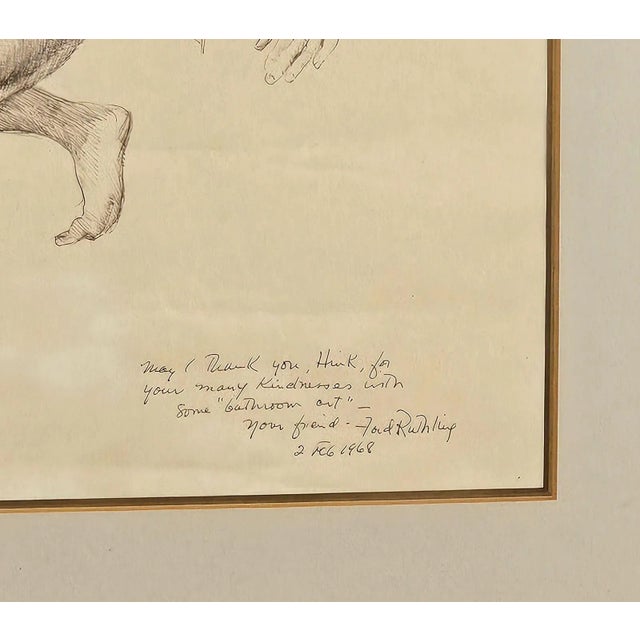 May I thank you, Hink, for
your many kindnesses with
some "bathroom art" —
your friend - Ford Ruthling
2 FEB 1968